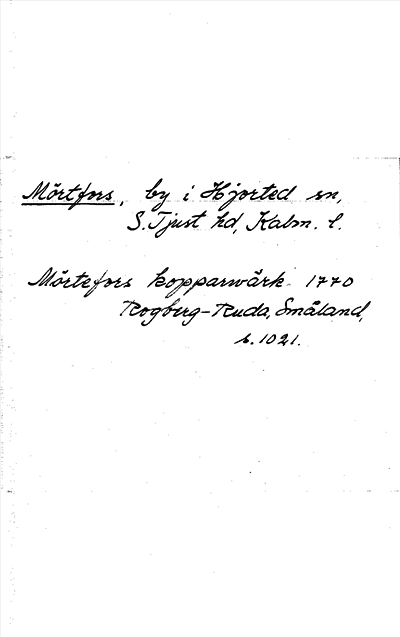 Mörtfors, by i Hjorted sn,
S. Tjust hd, Kalm. l.
Mörtefors kopparwärk 1770
Rogberg-Ruda, Småland,
s. 1021.